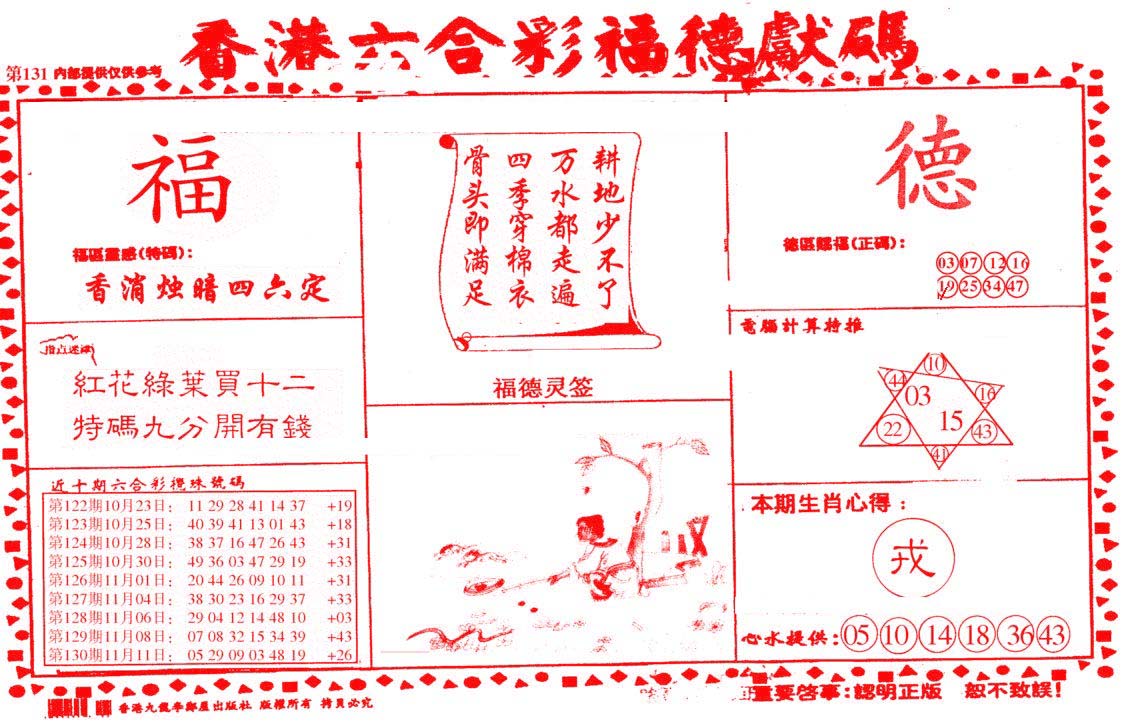 香港六合彩福德獻碼
第131 內部提供仅供參考
福
福區靈感(特碼):
香消烛暗四六定
指点迷津
紅花綠葉買十二
特碼九分開有錢
近十期六合彩攪珠號碼
第122期10月23日: 11 29 28 41 14 37 +19
第123期10月25日: 40 39 41 13 01 43 +18
第124期10月28日: 38 37 16 47 26 43 +31
第125期10月30日: 49 36 03 47 29 19 +33
第126期11月01日: 20 44 26 09 10 11 +31
第127期11月04日: 38 30 23 16 29 37 +33
第128期11月06日: 29 04 12 14 48 10 +03
第129期11月08日: 07 08 32 15 34 39 +43
第130期11月11日: 05 29 09 03 48 19 +26
耕地少不了
万水都走遍
四季穿棉衣
骨头即满足
福德灵签
德
德區賜福(正碼):
03 07 12 16
19 25 34 47
電腦計算特推
10
44 16
03
15
22 43
41
本期生肖心得:
戎
心水提供: 05 10 14 18 36 43
香港九龍李鄭屋出版社 版權所有 拷貝必究
重要啓事:認明正版 恕不致誤!